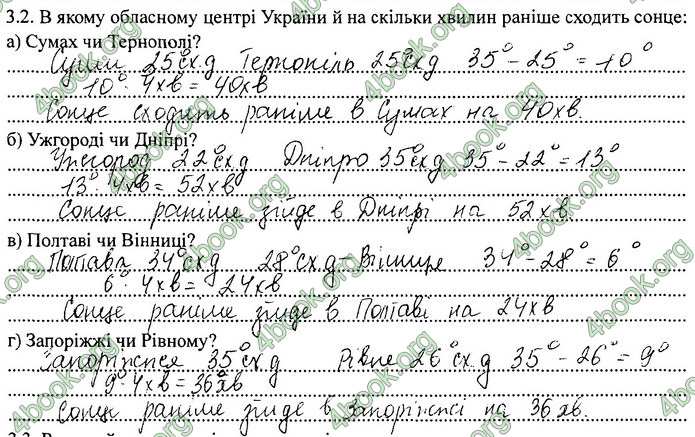 3.2. В якому обласному центрі України й на скільки хвилин раніше сходить сонце:
а) Сумах чи Тернополі?
Суми 25°сх.д Тернопіль 25°сх.д 35° - 25° = 10°
10° · 4хв = 40хв
Сонце сходить раніше в Сумах на 40хв.
б) Ужгороді чи Дніпрі?
Ужгород 22°сх.д Дніпро 35°сх.д 35° - 22° = 13°
13° · 4хв = 52хв
Сонце раніше зійде в Дніпрі на 52хв.
в) Полтаві чи Вінниці?
Полтава 34°сх.д 28°сх.д - Вінниця 34° - 28° = 6°
6° · 4хв = 24хв
Сонце раніше зійде в Полтаві на 24хв
г) Запоріжжі чи Рівному?
Запоріжжя 35°сх.д Рівне 26°сх.д 35° - 26° = 9°
9° · 4хв = 36хв
Сонце раніше зійде в Запоріжжі на 36хв.
4book.org